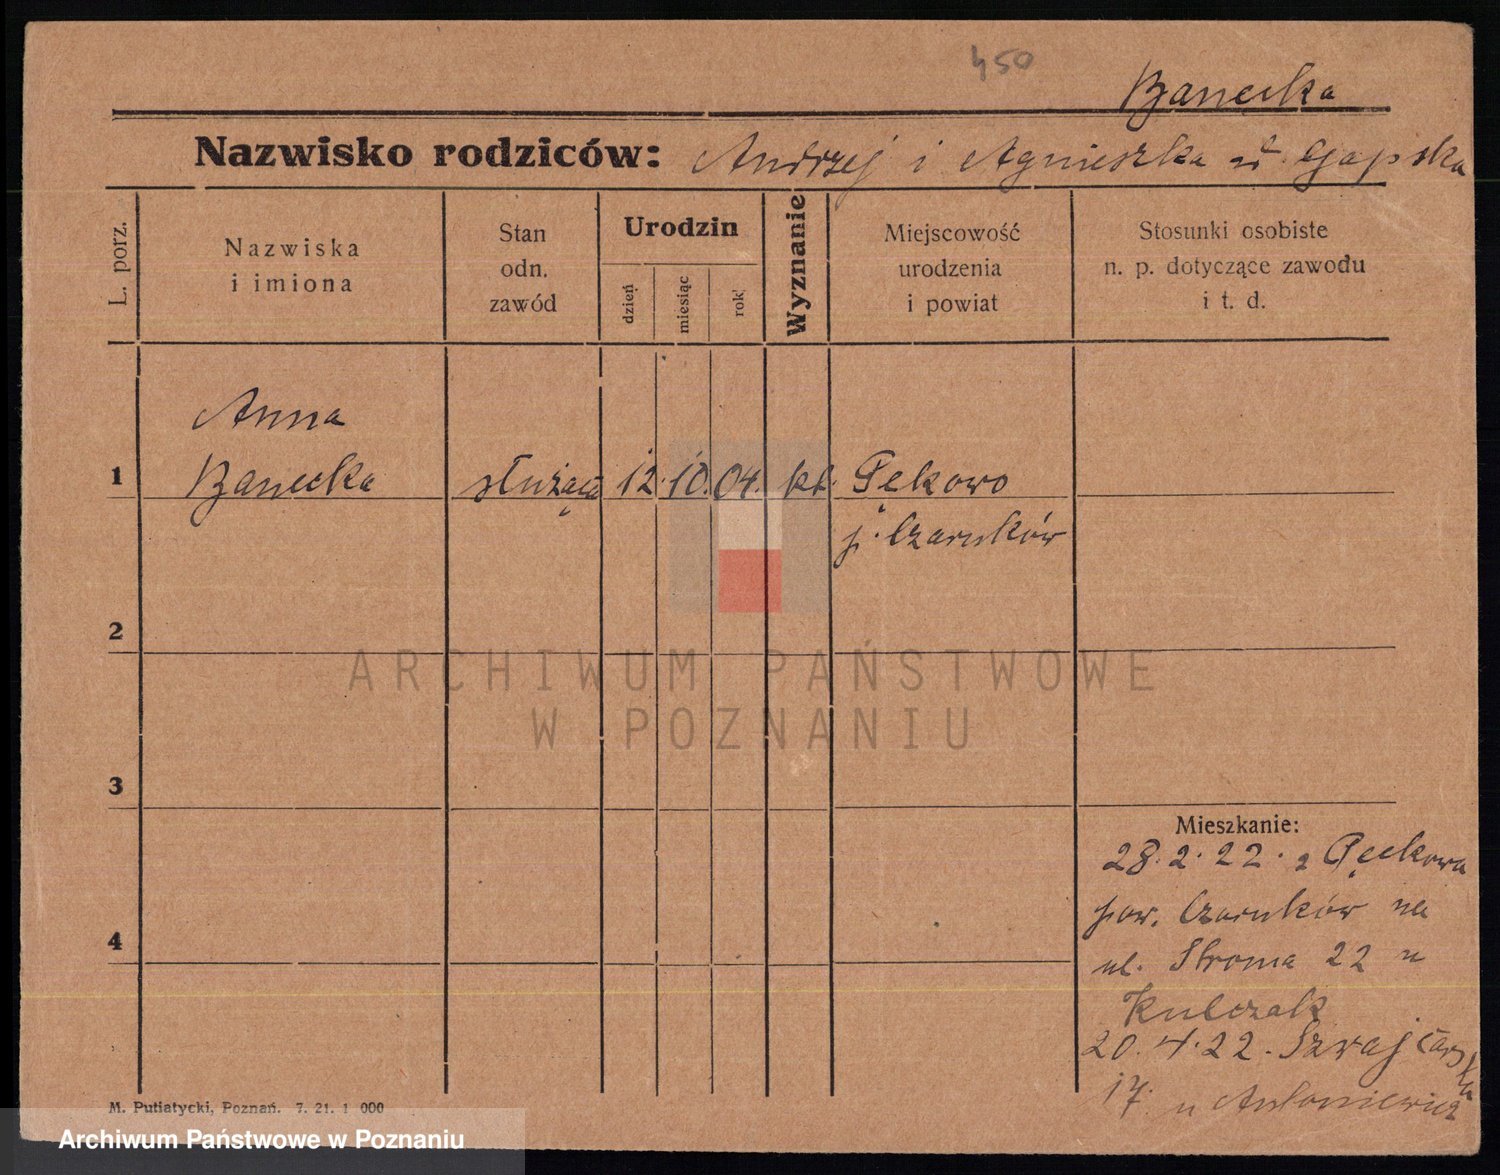 450
Banecka
Nazwisko rodziców: Andrzej i Agnieszka z Gapska
L. porz.
Nazwiska i imiona
Stan odn. zawód
Urodzin
dzień
miesiąc
rok
Wyznanie
Miejscowość urodzenia i powiat
Stosunki osobiste n. p. dotyczące zawodu i t. d.
Anna
1 Banecka służąca 12. 10. 04. kt. Pękowo
p. Czarnków
2
3
4
ARCHIWUM PAŃSTWOWE
W POZNANIU
Mieszkanie:
28. 2. 22. z Pęckowa
pow. Czarnków na
ul. Stroma 22 u
Kulczak
20. 4. 22. Szwajcarska
17. u Antoniewicz
M. Putiatycki, Poznań. 7. 21. 1 000
Archiwum Państwowe w Poznaniu